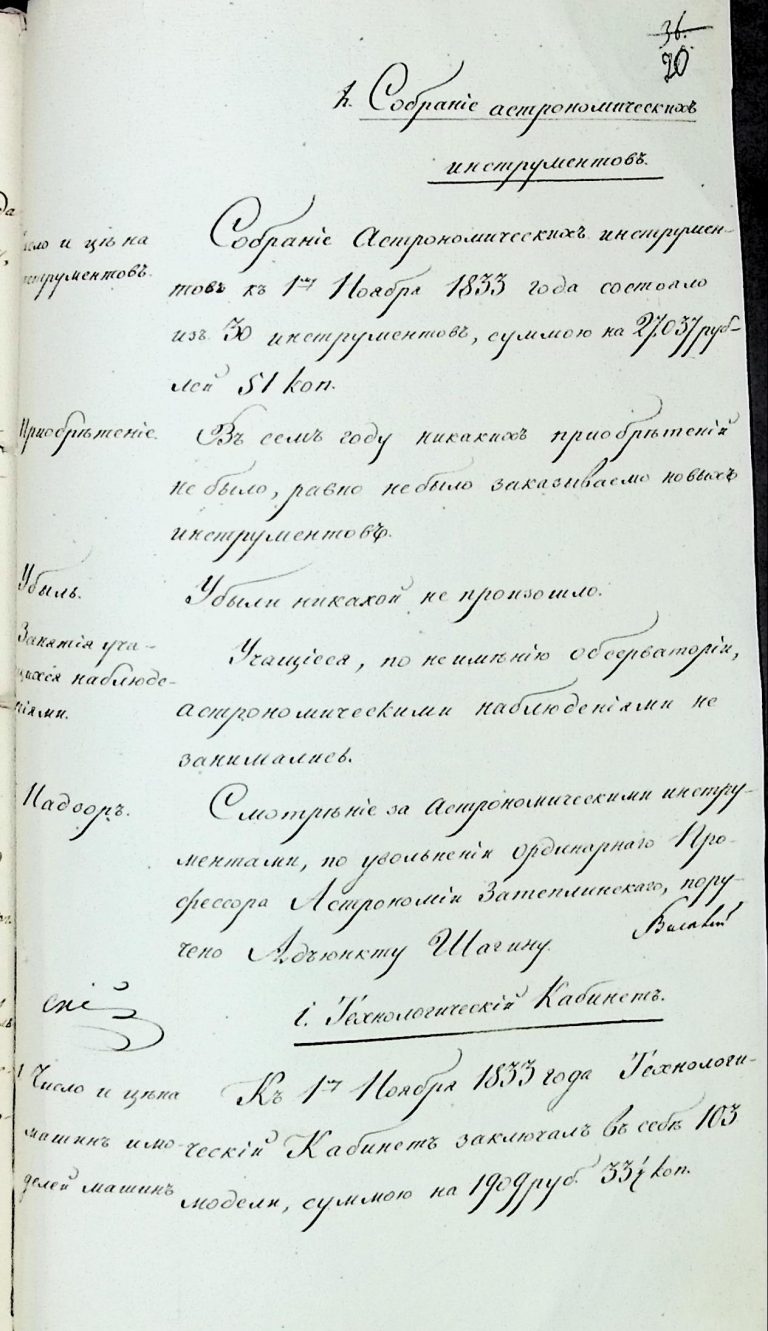 36.
20
h. Собраніе астрономическихъ
инструментовъ.
Число и цѣна
инструментовъ.
Собраніе Астрономическихъ инструмен-
товъ къ 1му Ноября 1833 года состояло
изъ 30 инструментовъ, суммою на 27.037 руб-
лей 51 коп.
Приобрѣтеніе.
Въ семъ году никакихъ приобрѣтеній
не было, равно не было заказываемо новыхъ
инструментовъ.
Убыль.
Убыли никакой не произошло.
Занятія уча-
щихся наблюде-
ніями.
Учащіеся, по неимѣнію обсерваторіи,
астрономическими наблюденіями не
занимались.
Надзоръ.
Смотрѣніе за Астрономическими инстру-
ментами, по увольненіи ординарнаго Про-
фессора Астрономіи Затеплинскаго, пору-
чено Адъюнкту Шагину.
скій
i. Технологическій Кабинетъ.
Число и цѣна
машинъ и мо-
делей машинъ
Къ 1му Ноября 1833 года Технологи-
ческій Кабинетъ заключалъ въ себѣ 103
модели, суммою на 1909 руб. 33½ коп.